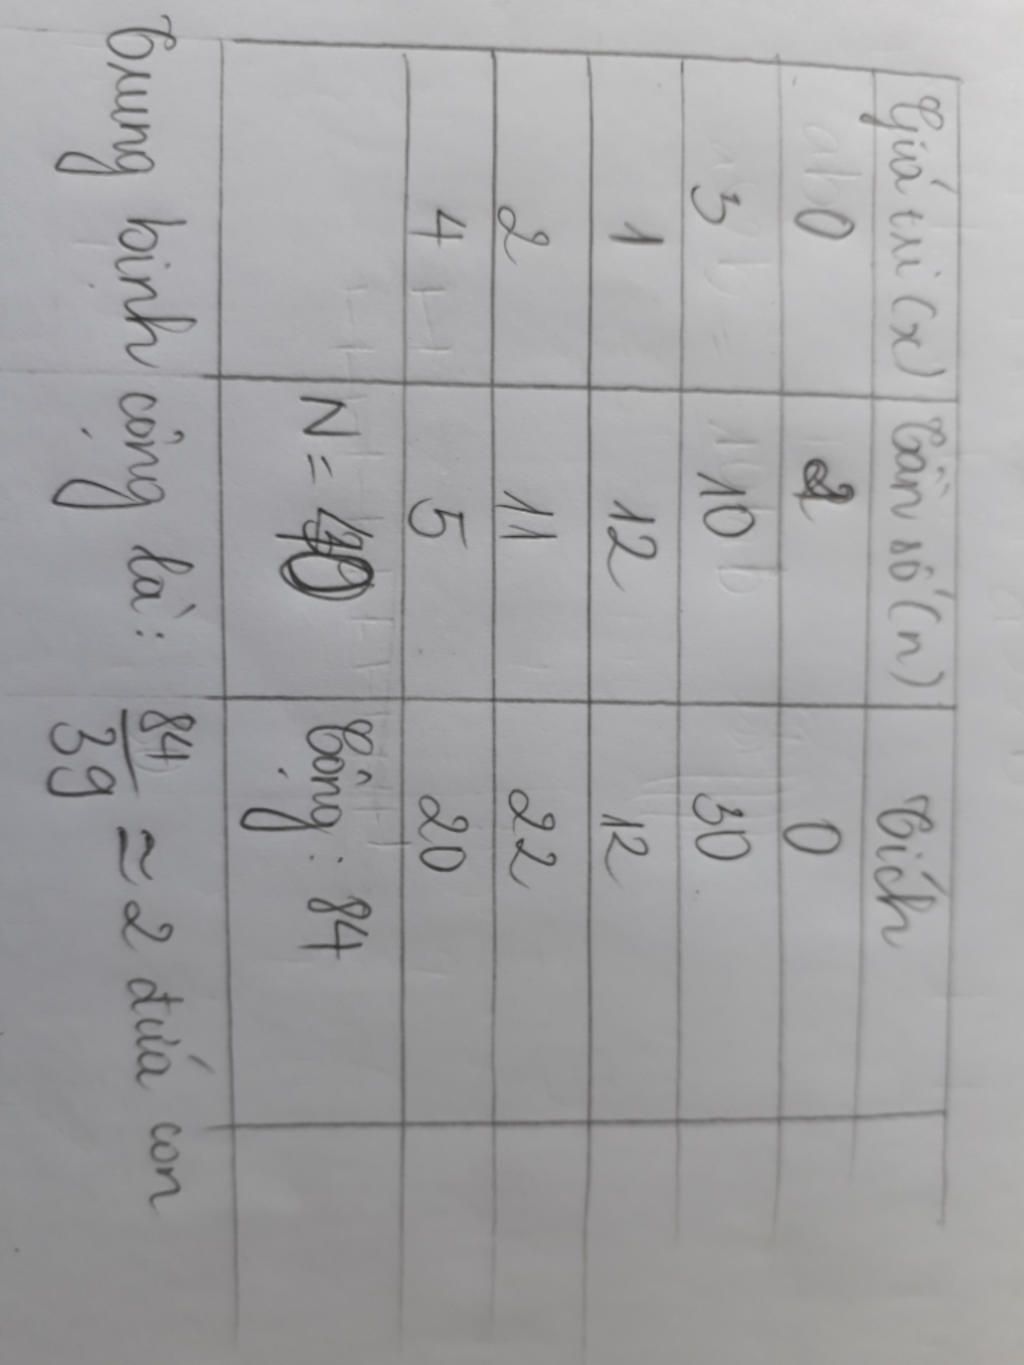 Giá trị (x) Tần số (n) Tích
0 2 0
3 10 30
1 12 12
2 11 22
4 5 20
N = 40 Cộng: 84
Trung bình cộng là: 84/39 ≃ 2 đứa con